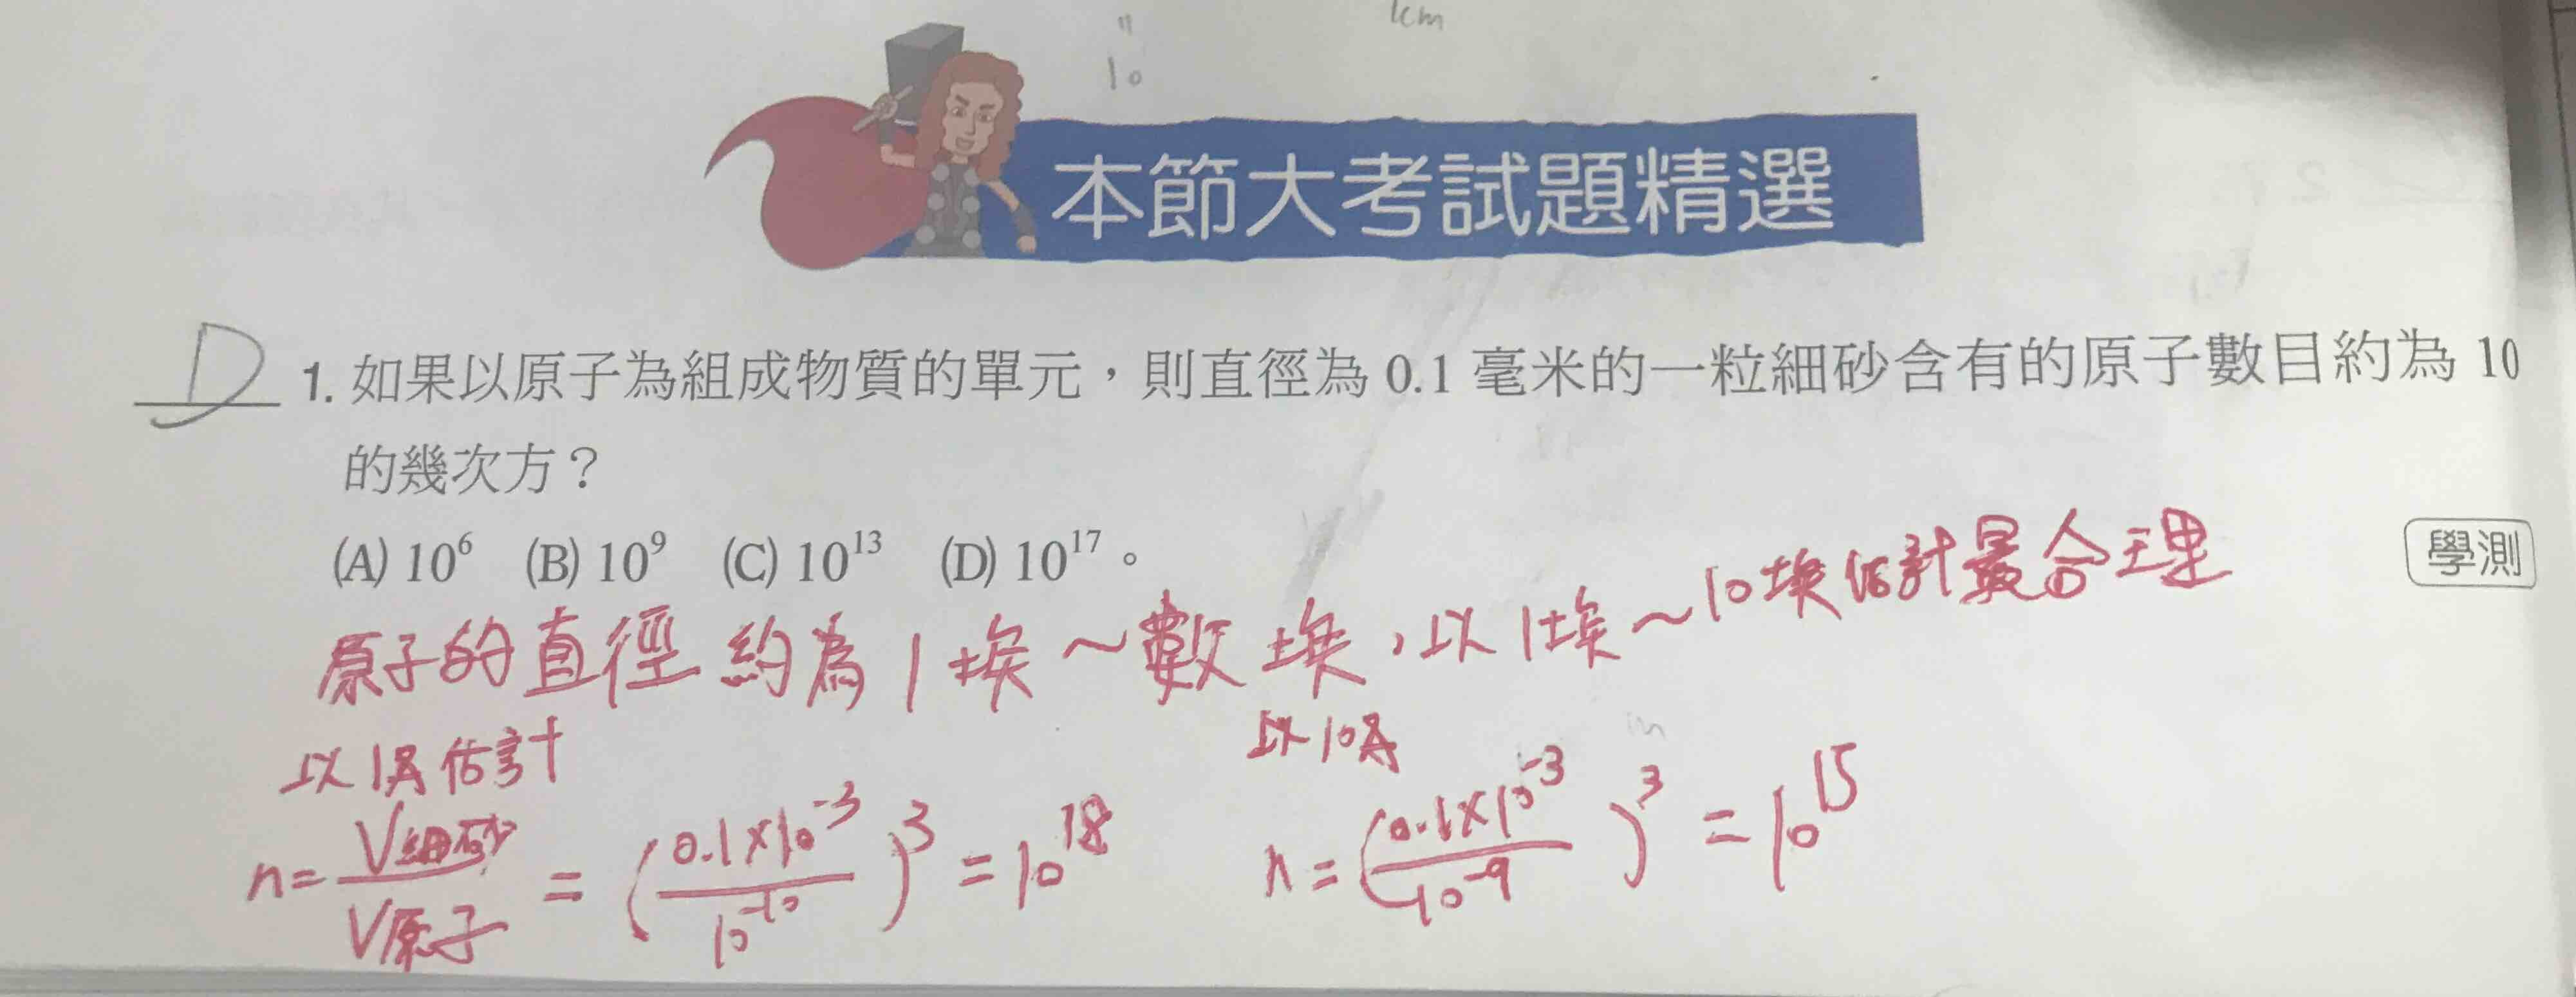 1cm
"
10
本節大考試題精選
D 1. 如果以原子為組成物質的單元，則直徑為 0.1 毫米的一粒細砂含有的原子數目約為 10
的幾次方？
(A) 10⁶ (B) 10⁹ (C) 10¹³ (D) 10¹⁷。
學測
原子的直徑約為 1 埃～數埃，以 1 埃～10 埃估計最合理
以 1Å 估計
n = V細砂 / V原子 = (0.1×10⁻³ / 10⁻¹⁰)³ = 10¹⁸
以 10Å
n = (0.1×10⁻³ / 10⁻⁹)³ = 10¹⁵